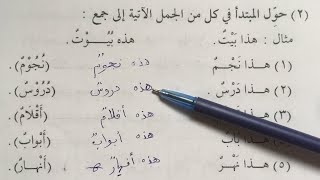 (٢) حوّل المبتدأ في كل من الجمل الآتية إلى جمع :
مثال : هذا بَيْتٌ. هذه بُيُوْتٌ.
(١) هذا نَجْمٌ هذه نجومٌ (نُجُوْمٌ).
(٢) هذا دَرْسٌ هذه دروسٌ (دُرُوْسٌ).
(٣) هذا هذه أقلامٌ (أَقْلَامٌ).
(٤) هذا بَابٌ هذه ابوابٌ (أَبْوَابٌ).
(٥) هذا نَهْرٌ هذه أنهارٌ (أَنْهارٌ).